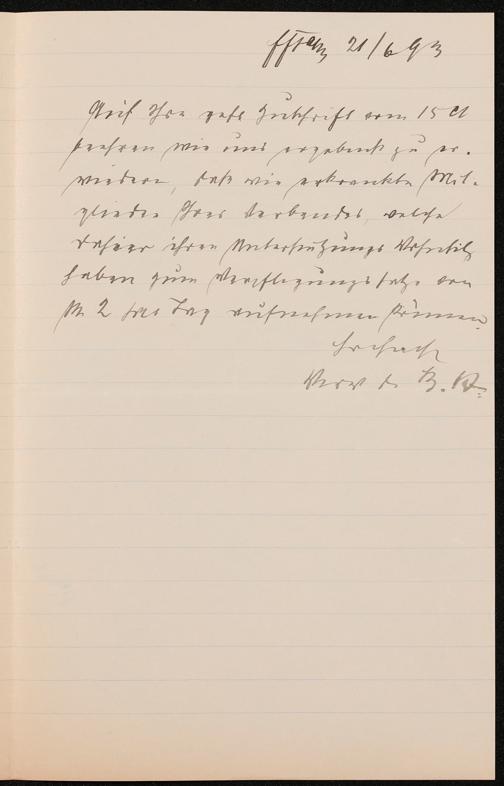 Ffm 21/6 93
Auf Ihre gefl. Zuschrift vom 15 ct
beehren wir uns ergebenst zu er-
wiedern, daß wir erkrankte Mit-
glieder Ihres Verbandes, welche
dahier ihren Unterstützungs Wohnsitz
haben zum Verpflegungssatze von
M. 2 pro Tag aufnehmen können.
Verw d.